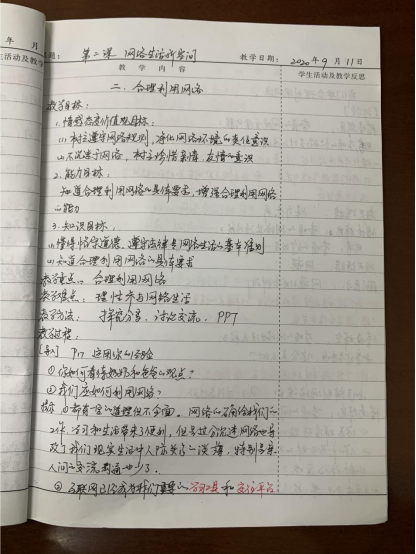 年 月
生活动及教学
课题: 第二课 网络生活新空间
教学日期: 2020年9月11日
教 学 内 容
学生活动及教学反思
二、合理利用网络
教学目标:
1.情感态度价值观目标:
(1)树立遵守网络规则,净化网络环境的责任意识
(2)不沉迷于网络,树立珍惜亲情、友情的意识
2.能力目标:
知道合理利用网络的具体要求,增强合理利用网络
的能力
3.知识目标:
(1)懂得恪守道德、遵守法律是网络生活的基本准则
(2)知道合理利用网络的具体要求
教学重点:合理利用网络
教学难点:理性参与网络生活
教学方法: 探究分享、讨论交流、PPT
教学过程:
[导入] P17 运用你的经验
①你如何看待妈妈和爸爸的观点?
②我们应如何利用网络?
提示:①都有一定的道理但不全面。网络的确给我们的
工作、学习和生活带来了便利,但是过分沉迷网络也导
致了我们现实生活中人际关系的淡薄,特别是亲
人间的交流沟通也少了.
②互联网已经成为我们重要的学习工具和交往平台